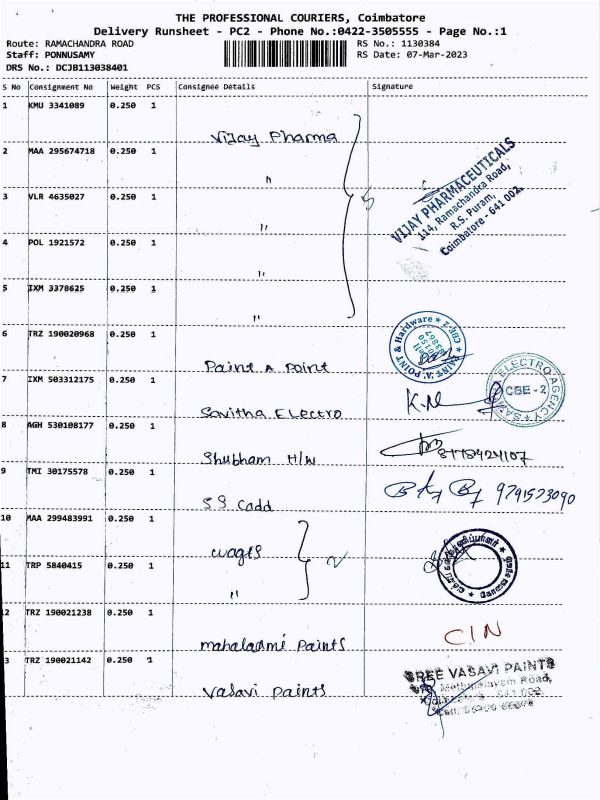 THE PROFESSIONAL COURIERS, Coimbatore
Delivery Runsheet - PC2 - Phone No.:0422-3505555 - Page No.:1
Route: RAMACHANDRA ROAD RS No.: 1130384
Staff: PONNUSAMY RS Date: 07-Mar-2023
DRS No.: DCJB113038401
S No Consignment No Weight PCS Consignee Details Signature
1 KMU 3341089 0.250 1
Vijay Pharma
2 MAA 295674718 0.250 1
"
3 VLR 4635027 0.250 1
"
4 POL 1921572 0.250 1
"
5 IXM 3378625 0.250 1
"
5
VIJAY PHARMACEUTICALS
114, Ramachandra Road,
R.S. Puram,
Coimbatore - 641 002.
6 TRZ 190020968 0.250 1
Paint A Point
PAINT 'A' POINT & Hardware * CBE-2 *
7 IXM 503312175 0.250 1
Savitha Electro
K.M
ELECTRO AGENCY
CBE - 2
8 AGH 530108177 0.250 1
Shubham H/W
9 TMI 30175578 0.250 1
S S Cadd
9791573090
10 MAA 299483991 0.250 1
wages
11 TRP 5840415 0.250 1
"
2
12 TRZ 190021238 0.250 1
mahalaxmi Paints
CIN
3 TRZ 190021142 0.250 1
Vasavi Paints
SREE VASAVI PAINTS